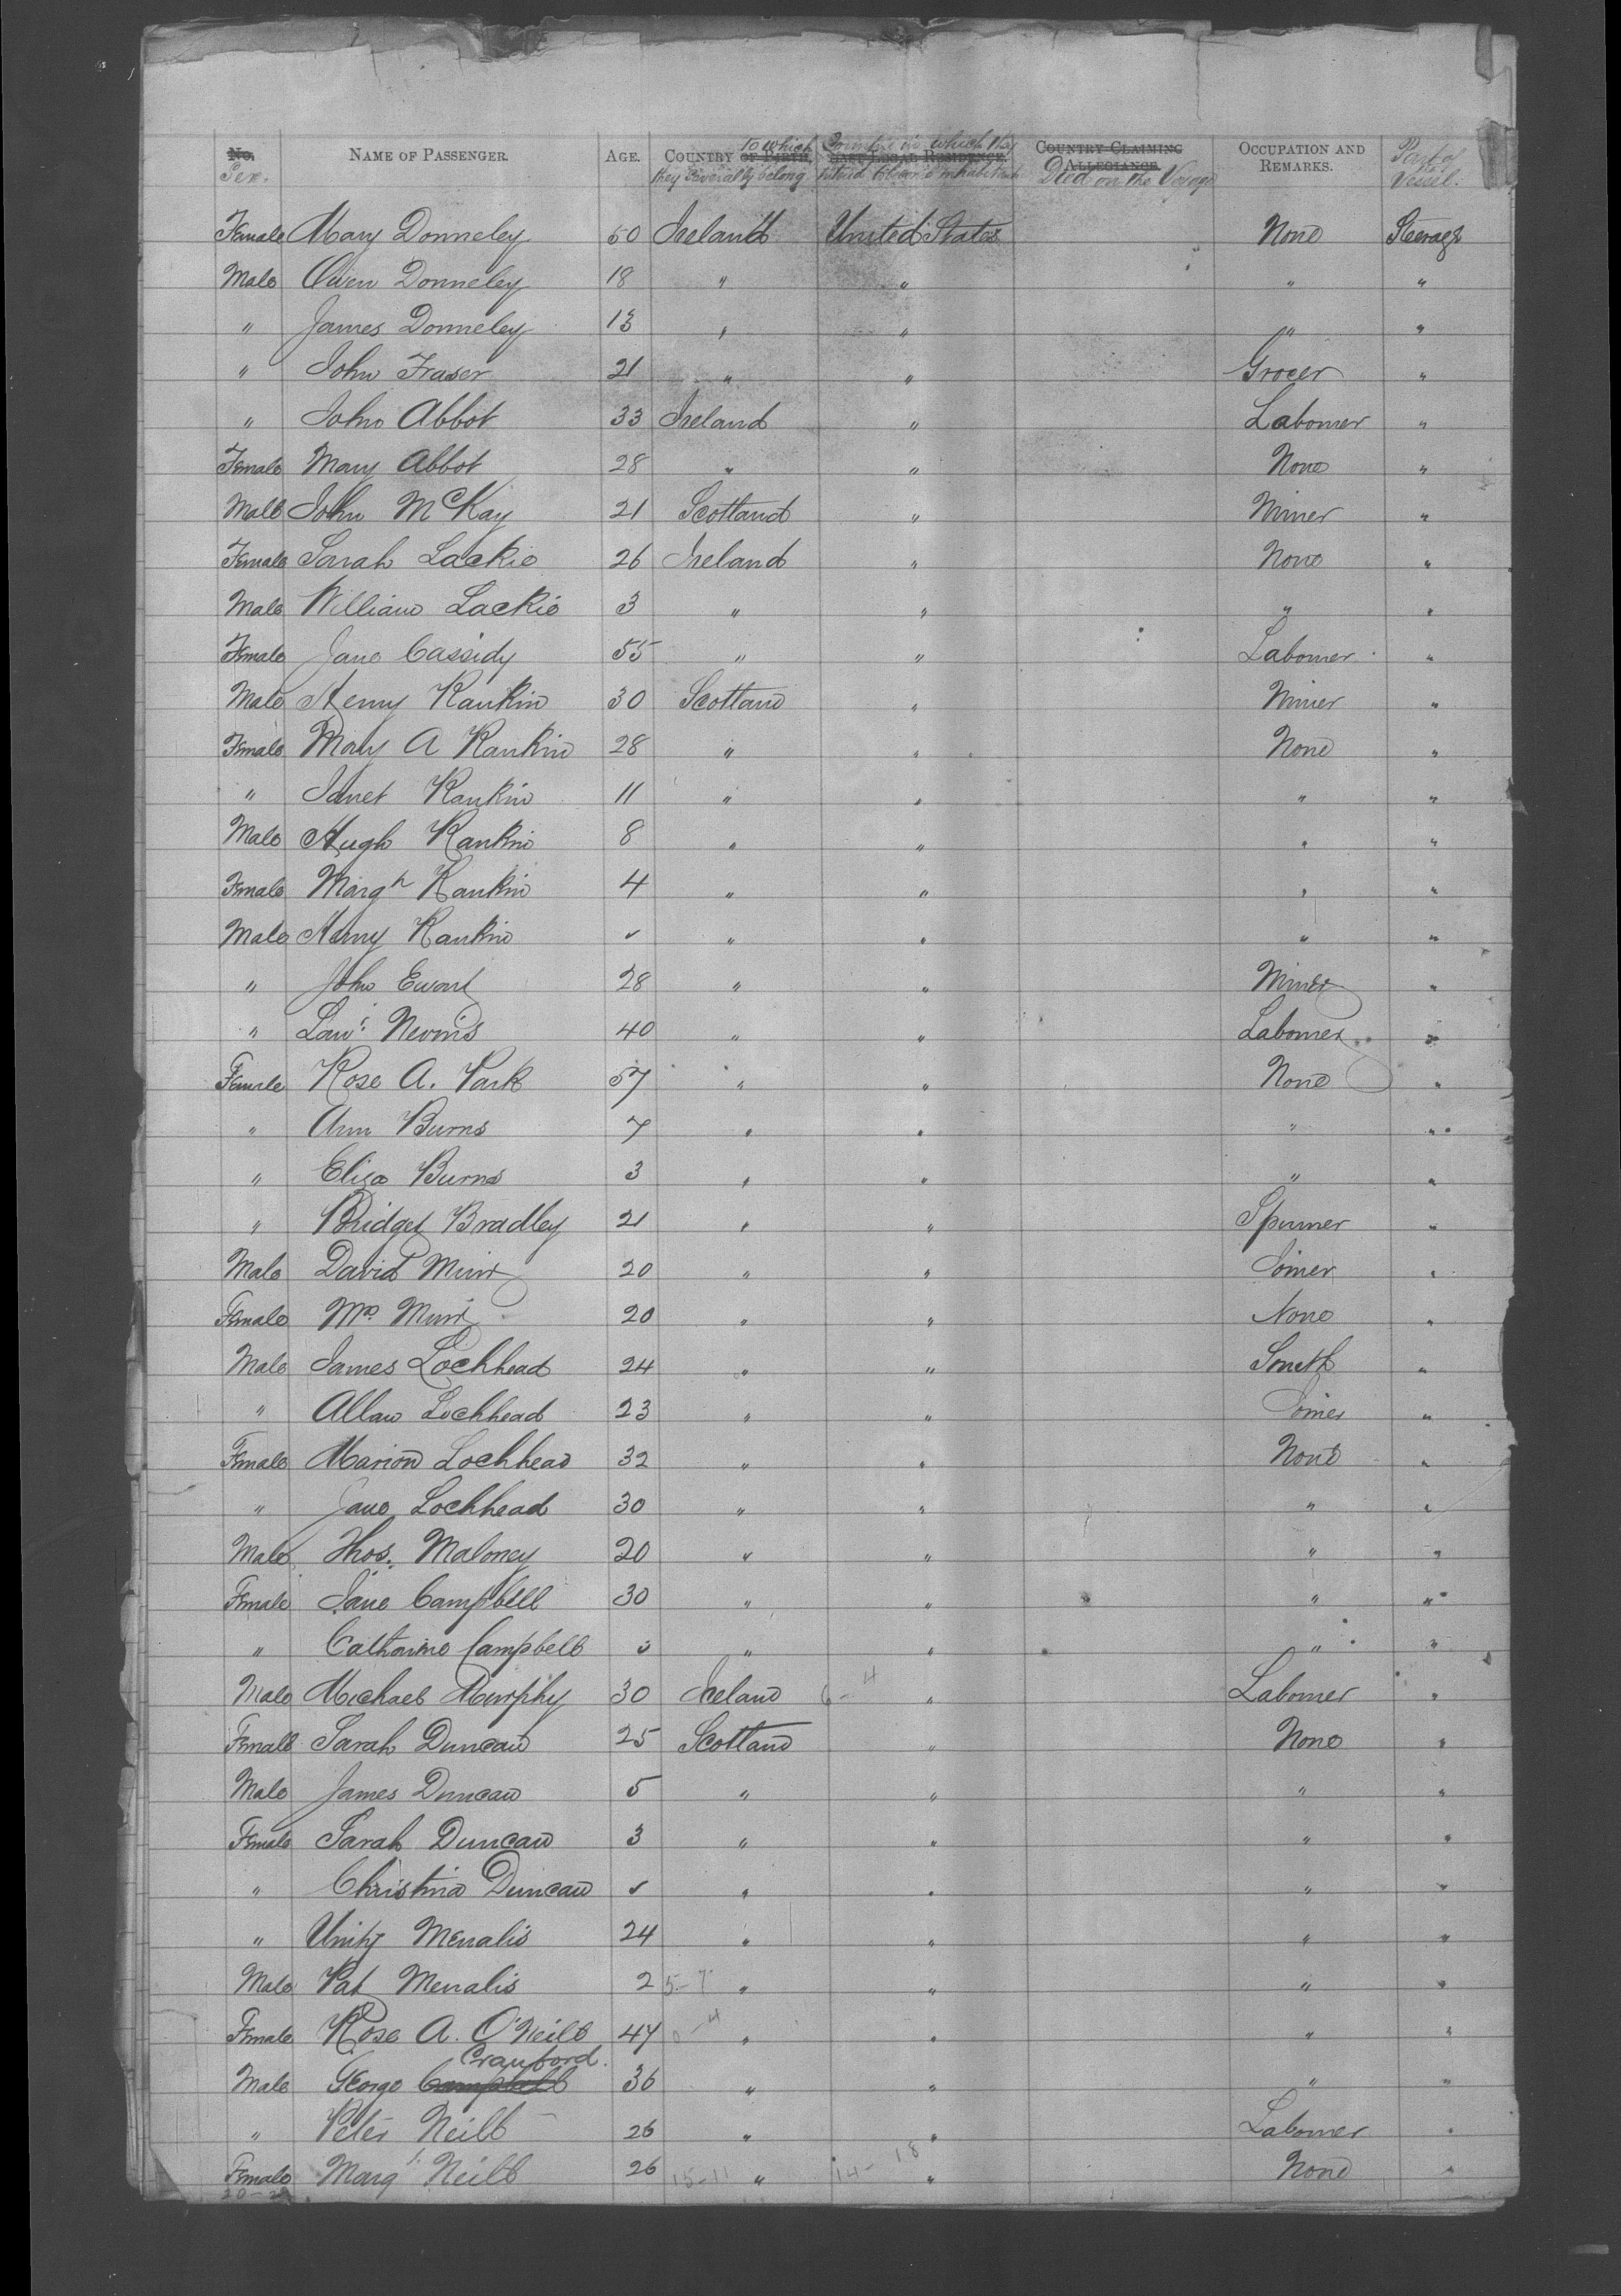 No. NAME OF PASSENGER. AGE. COUNTRY OF BIRTH. to which LAST LEGAL RESIDENCE. COUNTRY CLAIMING ALLEGIANCE. OCCUPATION AND REMARKS. Part of Vessel.
Sex. they severally belong Country in which they intend to become inhabitants Died on the Voyage
Female Mary Donneley 50 Ireland United States None Steerage
Male Owen Donneley 18 " " " "
" James Donneley 13 " " " "
" John Fraser 21 " " Grocer "
" John Abbot 33 Ireland " Labourer "
Female Mary Abbot 28 " " None "
Male John McKay 21 Scotland " Miner "
Female Sarah Lackie 26 Ireland " None "
Male William Lackie 3 " " " "
Female Jane Cassidy 55 " " Labourer "
Male Henry Rankin 30 Scotland " Miner "
Female Mary A Rankin 28 " " None "
" Janet Rankin 11 " " " "
Male Hugh Rankin 8 " " " "
Female Margt Rankin 4 " " " "
Male Henry Rankin " " " "
" John Ewart 28 " " Miner "
" Lawr Nevins 40 " " Labourer "
Female Rose A. Park 57 " " None "
" Ann Burns 7 " " " "
" Eliza Burns 3 " " " "
" Bridget Bradley 21 " " Spinner "
Male David Muir 20 " " Joiner "
Female Mrs Muir 20 " " None "
Male James Lochhead 24 " " Smith "
" Allan Lochhead 23 " " Joiner "
Female Marion Lochhead 32 " " None "
" Jane Lochhead 30 " " " "
Male Thos. Maloney 20 " " " "
Female Jane Campbell 30 " " " "
" Catharine Campbell " " " "
Male Michael Murphy 30 Ireland 6-4 " Labourer "
Female Sarah Duncan 25 Scotland " None "
Male James Duncan 5 " " " "
Female Sarah Duncan 3 " " " "
" Christina Duncan " " " "
" Unity Menalis 24 " " " "
Male Pat Menalis 2 5-7 " " " "
Female Rose A. O'Neill 47 " " " "
Crauford.
Male George Campbell 36 " " " "
" Peter Neill 26 " " Labourer "
Female Margt Neill 26 15-11 " 14-18 " None "